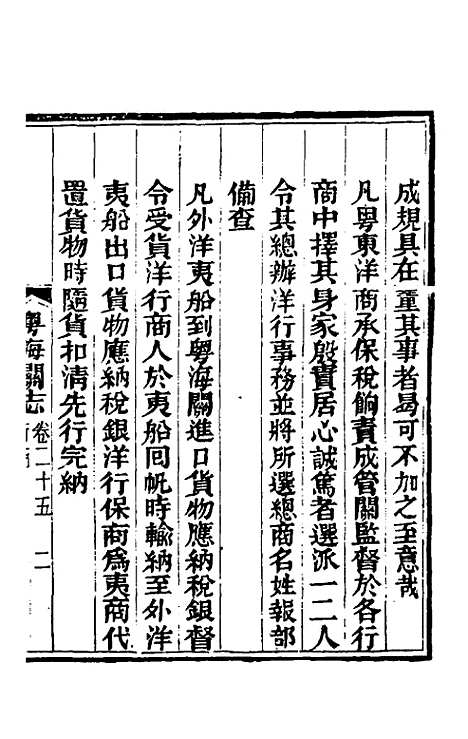 成規具在董其事者曷可不加之至意哉
凡粵東洋商承保稅餉責成管關監督於各行
商中擇其身家殷實居心誠篤者選派一二人
令其總辦洋行事務並將所選總商名姓報部
備查
凡外洋夷船到粵海關進口貨物應納稅銀督
令受貨洋行商人於夷船回帆時輸納至外洋
夷船出口貨物應納稅銀洋行保商爲夷商代
置貨物時隨貨扣清先行完納
粵海關志 卷二十五 二